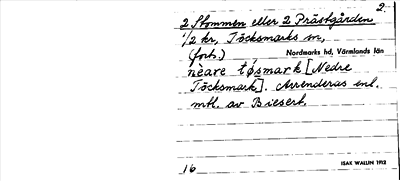 2.
2 Stommen eller 2 Prästgården
1/2 kr, Töcksmarks sn,
(forts.) Nordmarks hd, Värmlands län
nèare tǿsmark [Nedre
Töcksmark]. Avrenderas enl.
mtl. av Biesert.
16 ISAK WALLIN 1912